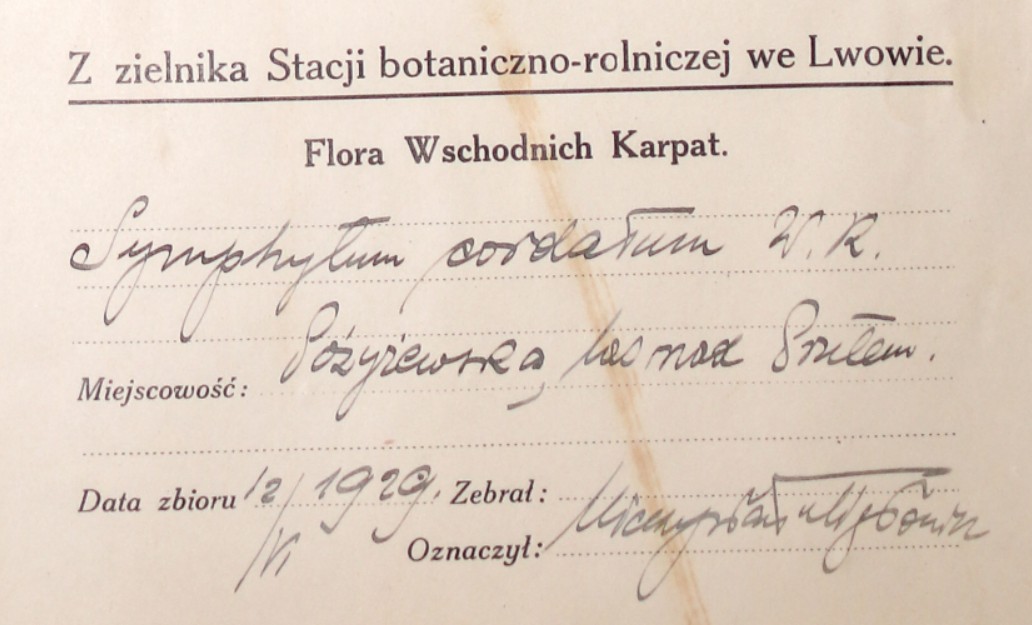 Z zielnika Stacji botaniczno-rolniczej we Lwowie.
Flora Wschodnich Karpat.
Symphytum cordatum W. K.
Miejscowość: Pożyżewska, las nad Prutem.
Data zbioru 12/VI 1929. Zebrał:
Oznaczył: